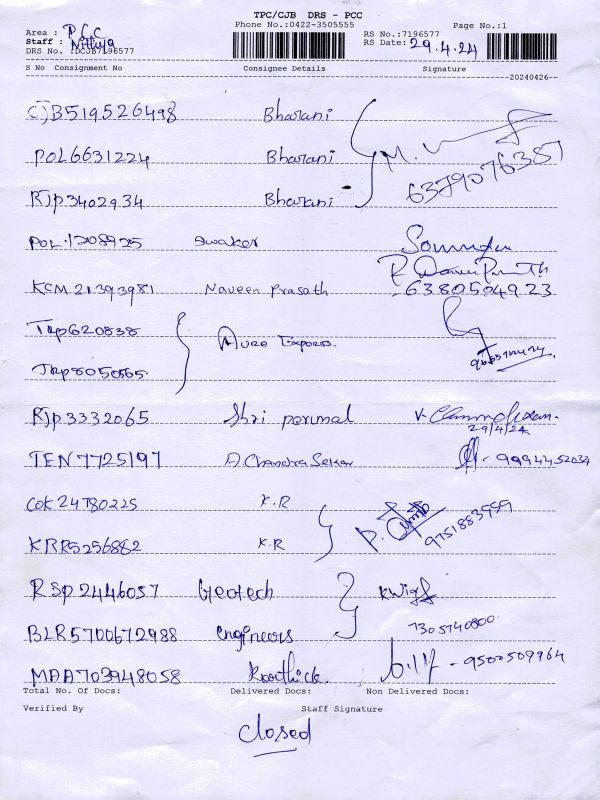 TPC/CJB DRS - PCC
Phone No.:0422-3505555
Page No.:1
Area : PCC
RS No.:7196577
Staff :
DRS No. :DCJB7196577
RS Date: 29.4.24
S No Consignment No Consignee Details Signature
20240426
CJB519526498 Bharani
POL6631224 Bharani
6379076387
RJP3402934 Bharani
POL.1208925
KCM21393981 Naveen Prasath 6380504923
TRP620838
Auro Express.
RJP3332065 Shri perumal
29/4/24
TEN7725197 A.Chandra Sekar
COK24780225 K.R
9751883959
KRR5256882 K.R
RSP2446057 Geotech
7305740800
BLR5700672988 engineers
MAA703948058 Karthick. - 9500509964
Total No. Of Docs: Delivered Docs: Non Delivered Docs:
Verified By Staff Signature
Closed